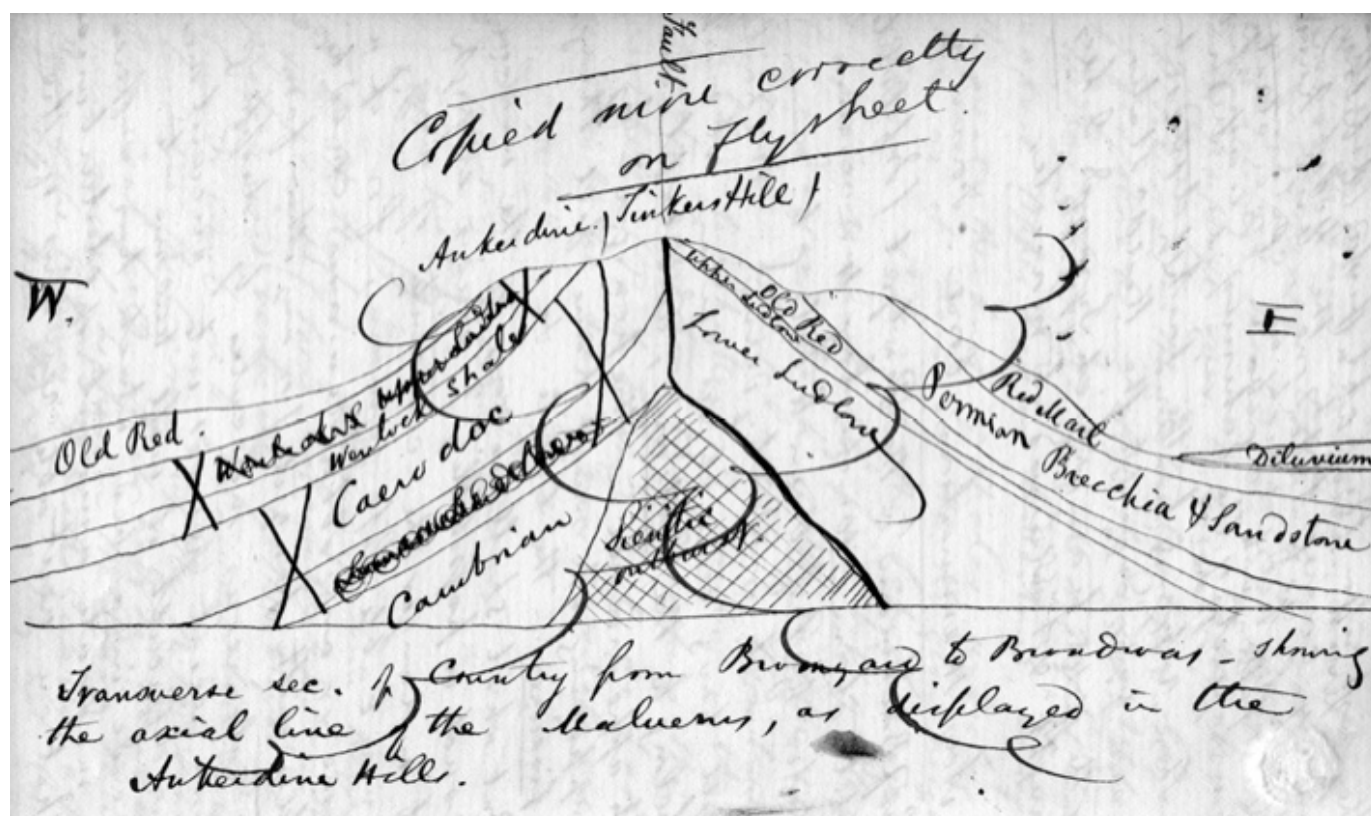 Fault
Copied more correctly
on flysheet.
Ankerdine / Tinkers Hill /
W.
E
Old Red.
Wenlock Shale
Caradoc
Cambrian
Sienitic
outburst.
Upper Ludlow
Old Red
Lower Ludlow
Permian Brecchia & Sandstone
Red Marl
Diluvium
Transverse sec. of Country from Bromyard to Broadwas - showing
the axial line of the Malverns, as displayed in the
Ankerdine Hills.